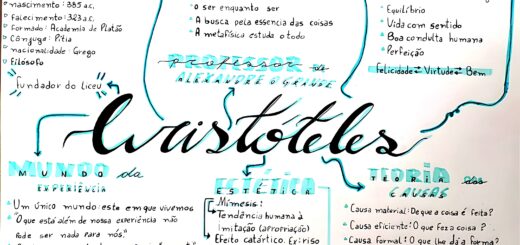 nascimento: 385 a.c.
falecimento: 323 a.c.
Formado: Academia de Platão
Cônjuge: Pítia
nacionalidade: Grego
Filósofo
"fundador do Liceu"
O ser enquanto ser
A busca pela essencia das coisas
A metafísica estuda o todo
professor de
ALEXANDRE O GRANDE
Equilíbrio
Vida com sentido
Boa conduta humana
Perfeição
Felicidade ⇄ Virtude ⇄ Bem
Aristóteles
MUNDO da
EXPERIÊNCIA
Um único mundo: este em que vivemos
"O que está além de nossa experiência não
Pode ser nada para nós."
ESTÉTICA
Mimesis:
Tendência humana à
imitação (apropriação)
Efeito catártico. Ex: riso
TEORIA das
CAUSAS
Causa material: De que a coisa é feita?
Causa eficiente: O que fez a coisa?
Causa formal: O que lhe dá forma?